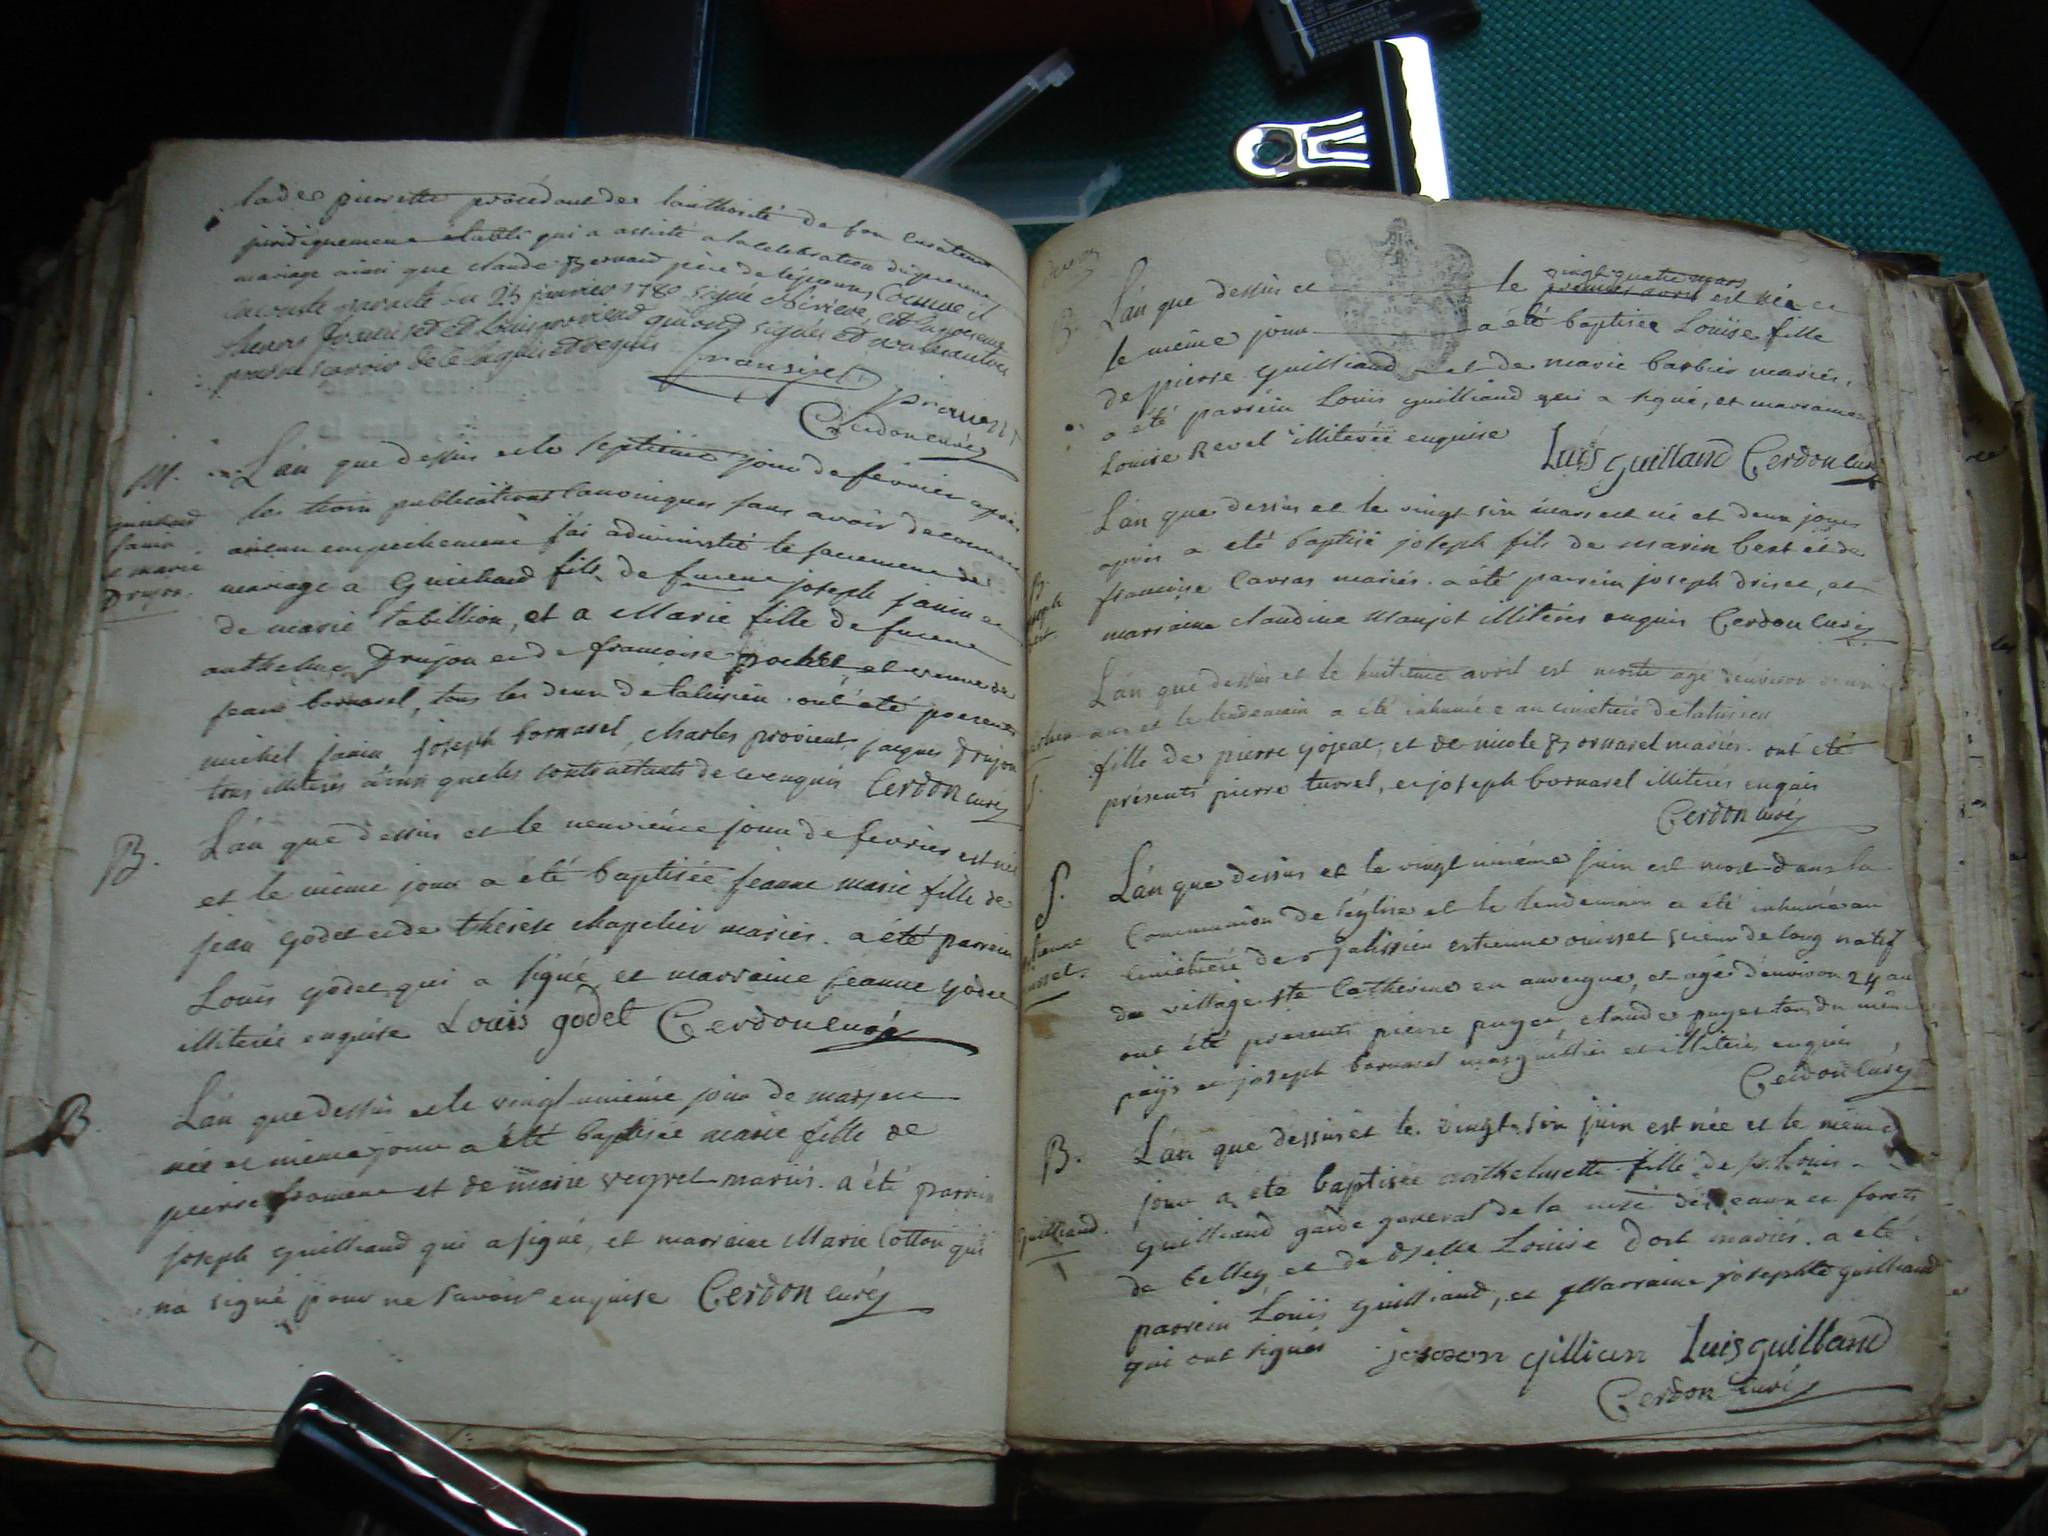 ladee pierrette procédant de l'authorité de son curateur
juridiquement établi qui a assisté a la célébration du present
mariage ainsi que claude Bernard père de l'époux, comme il
conste par acte du 23 janvier 1780 signé
et Louis provient qui ont signés et non les autres
pour ne scavoir de ce
fransiset provient
Cerdon curé
M.
guichard
janin
et marie
Drujon.
L'an que dessus et le septieme jour de février après
les trois publications canoniques sans avoir decouvert
aucun empechement j'ai administré le sacrement de
mariage a Guichard fils de furent joseph janin et
de marie tabillion, et a Marie fille de furent
anthelme Drujon et de francoise pochet et veuve de
jean bornarel, tous les deux de talissieu. ont été présents
michel janin joseph bornarel, charles provient, jacques Drujon
tous illiterés ainsi que les contractants de ce enquis Cerdon curé
B.
L'an que dessus et le neuvième jour de fevrier est née
et le même jour a été baptisée jeanne marie fille de
jean godet et de thérèse chapelier mariés. a été parrein
Louis godet qui a signé, et marraine jeanne godet
illiterée enquise Louis godet Cerdon curé
B.
L'an que dessus et le vingt unième jour de mars est
née et même jour a été baptisée marie fille de
pierre froment et de marie veyret mariés. a été parrein
joseph guilliand qui a signé, et marraine Marie Cotton qui
n'a signé pour ne savoir enquise Cerdon curé
B.
L'an que dessus et le vingt quatre mars
premier avril est née et
le même jour a été baptisée Louïse fille
de pierre guilliand et de marie barbier mariés.
a été parrein Louis guilliand qui a signé, et marraine
Louise Revel illiterée enquise Luis guilland Cerdon curé
B.
joseph
bert
L'an que dessus et le vingt six mars est né et deux jours
après a été baptisé joseph fils de marin bert et de
francoise Carras mariés. a été parrein joseph Driset, et
marraine claudine manjot illiterés enquis Cerdon curé
S.
L'an que dessus et le huitieme avril est morte agé d'environ deux
ans et le lendemain a été inhumée au cimetière de talissieu
fille de pierre gojeat, et de nicole Bornarel mariés. ont été
présents pierre turrel, et joseph bornarel illiterés enquis
Cerdon curé
S.
estienne
ouisset.
L'an que dessus et le vingt unième juin est mort dans la
Communion de l'église et le lendemain a été inhumé au
cimetière de Talissieu estienne ouisset scieur de long natif
du village ste Catherine en auvergne, et agé d'environ 24 an
ont été presents pierre puyet, claude puyet tous du même
païs et joseph bornarel marguillier et illiterés enquis
Cerdon curé
B.
guilliand.
L'an que dessus et le vingt-six juin est née et le même
jour a été baptisée anthelmette fille de sr. Louis
guilliand garde general de la des eaux et forets
de belley, et de dzelle Louise Dort mariés. a été
parrein Louis guilliand, et Marraine josephte guilliand
qui ont signés gillian Luis guilland
Cerdon curé